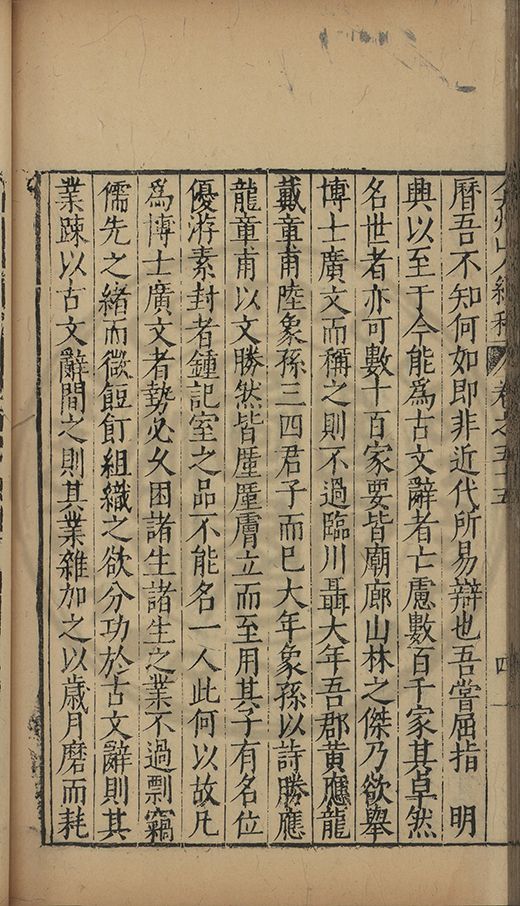 弇州山人續稿 卷之五十五 四
曆吾不知何如即非近代所易辯也吾嘗屈指 明
興以至于今能爲古文辭者亡慮數百千家其卓然
名世者亦可數十百家要皆廟廊山林之傑乃欲舉
博士廣文而稱之則不過臨川聶大年吾郡黄應龍
戴章甫陸象孫三四君子而已大年象孫以詩勝應
龍章甫以文勝然皆厪厪膚立而至用其子有名位
優游素封者鍾記室之品不能名一人此何以故凡
爲博士廣文者勢必久困諸生諸生之業不過剽竊
儒先之緒而微餖飣組織之欲分功於古文辭則其
業踈以古文辭間之則其業雜加之以歲月磨而耗